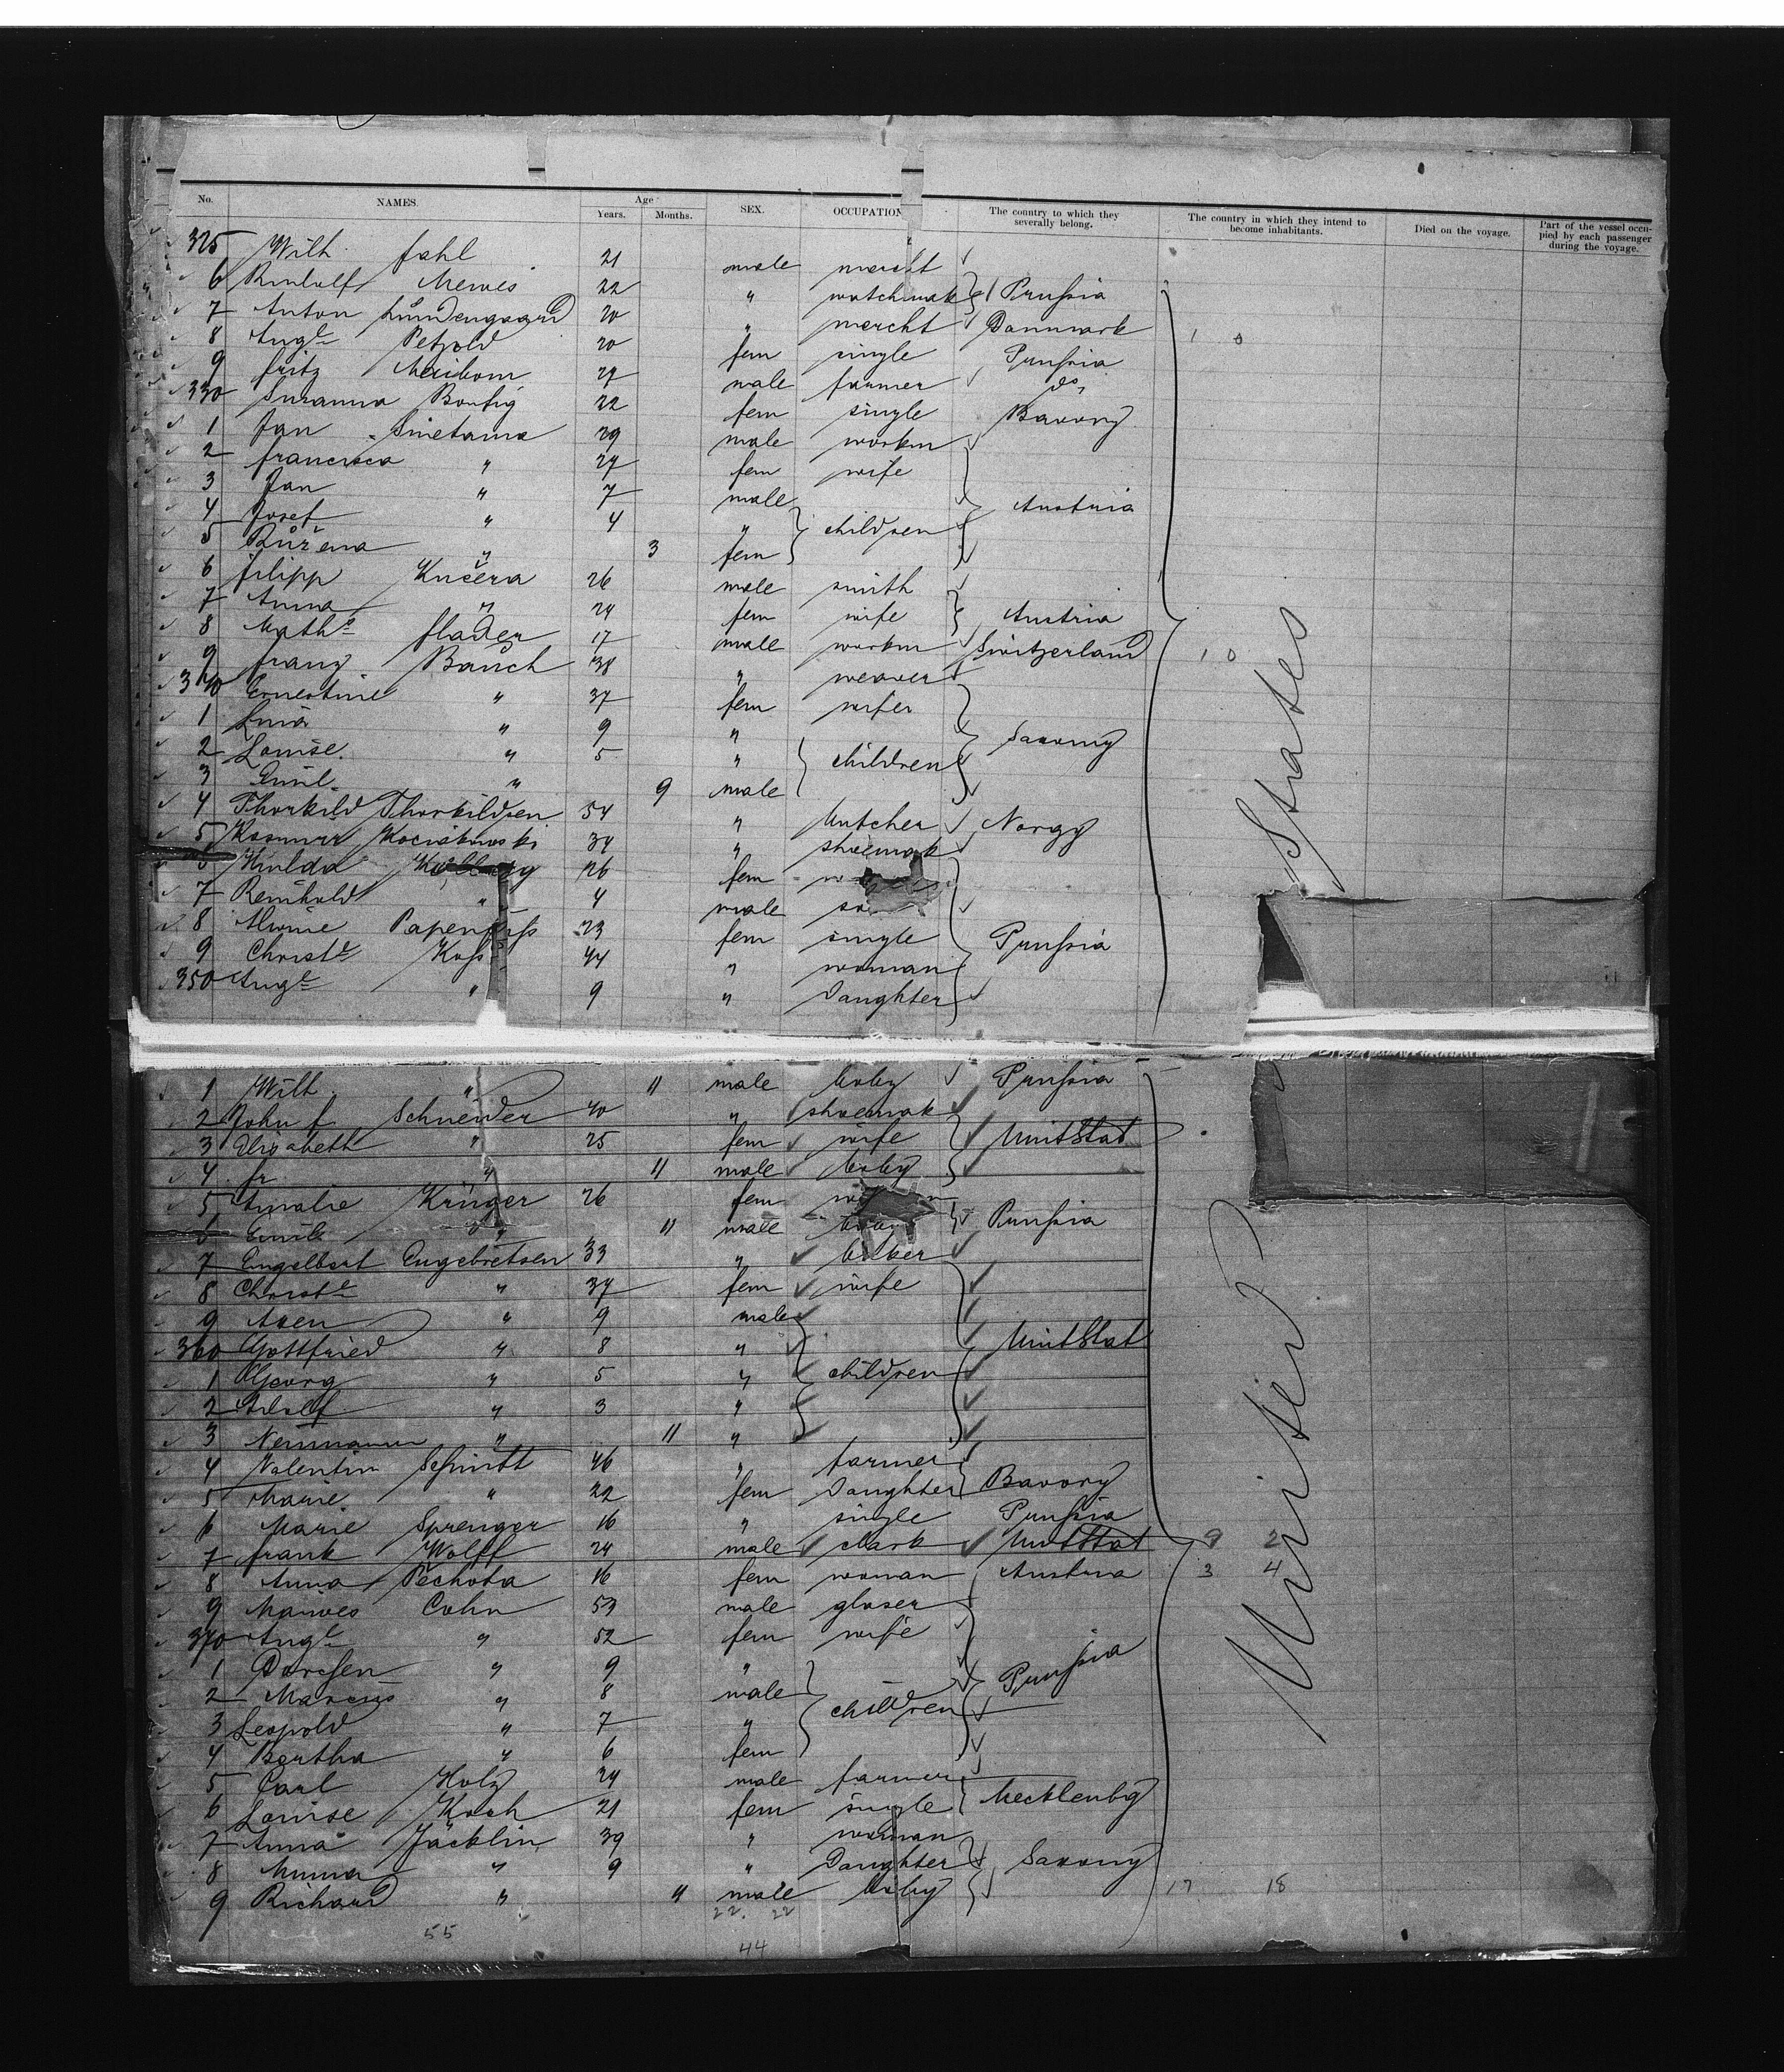 No. NAMES. Age Years. Months. SEX. OCCUPATION The country to which they severally belong. The country in which they intend to become inhabitants. Died on the voyage. Part of the vessel occupied by each passenger during the voyage.
325 Wilh. Fahl 21 male mercht
6 Rudolf Mewes 22 " watchmak Prussia
7 Anton 20 " mercht Danmark 1 0
8 Auge Petzold 20 fem single Prussia
9 Fritz Meibom 27 male farmer do
330 Susanna 22 fem single Bavory
1 Jan Smetana 29 male workm
2 Francisca " 27 fem wife
3 Jan " 7 male Austria
4 Josef " 4 " children
5 Růžena " 3 fem
6 Filipp Kučera 26 male smith
7 Anna " 24 fem wife Austria
8 Mathe Flader 17 male workm Switzerland 1 0
9 Franz Bauch 38 " weaver
340 Ernestine " 37 fem wife
1 " 9 " Saxony
2 Louise " 5 " children
3 Emil " 9 male
4 Thorkild Thorkildsen 54 " butcher Norgy
5 34 " shoemak
6 Hulda 26 fem
7 Reinhold " 4 male
8 Alwine Papenfuss 23 fem single Prussia
9 Christe Koss 44 " woman
350 Auge " 9 " Daughter
1 Wilh. " 11 male baby Prussia
2 John F. Schneider 40 " shoemak
3 Elisabeth " 25 fem wife UnitStat
4 Fr. " 11 male baby
5 Amalie Krüger 26 fem
6 Emil " 11 male Prussia
7 Engelbert Engebretsen 33 " baker
8 Christe " 37 fem wife
9 Axen " 9 male
360 Gottfried " 8 " UnitStat
1 Georg " 5 " children
2 Adolf " 3 "
3 " 11 "
4 Valentin Schmitt 46 " farmer
5 Marie " 22 fem Daughter Bavory
6 Marie Sprenger 16 " single Prussia
7 Frank Wolff 24 male clark UnitStat 9 2
8 Anna Pechota 16 fem woman Austria 3 4
9 Cohn 53 male glaser
370 Auge " 52 fem wife
1 " 9 " Prussia
2 Marcus " 8 male children
3 Leopold " 7 "
4 Bertha " 6 fem
5 Carl Holz 24 male farmer
6 Louise Koch 21 fem single Mecklenbg
7 Anna Jäcklin 39 " woman
8 Minna " 9 " Daughter Saxony
9 Richard " 11 male baby 17 18
22. 22
55
44
United States